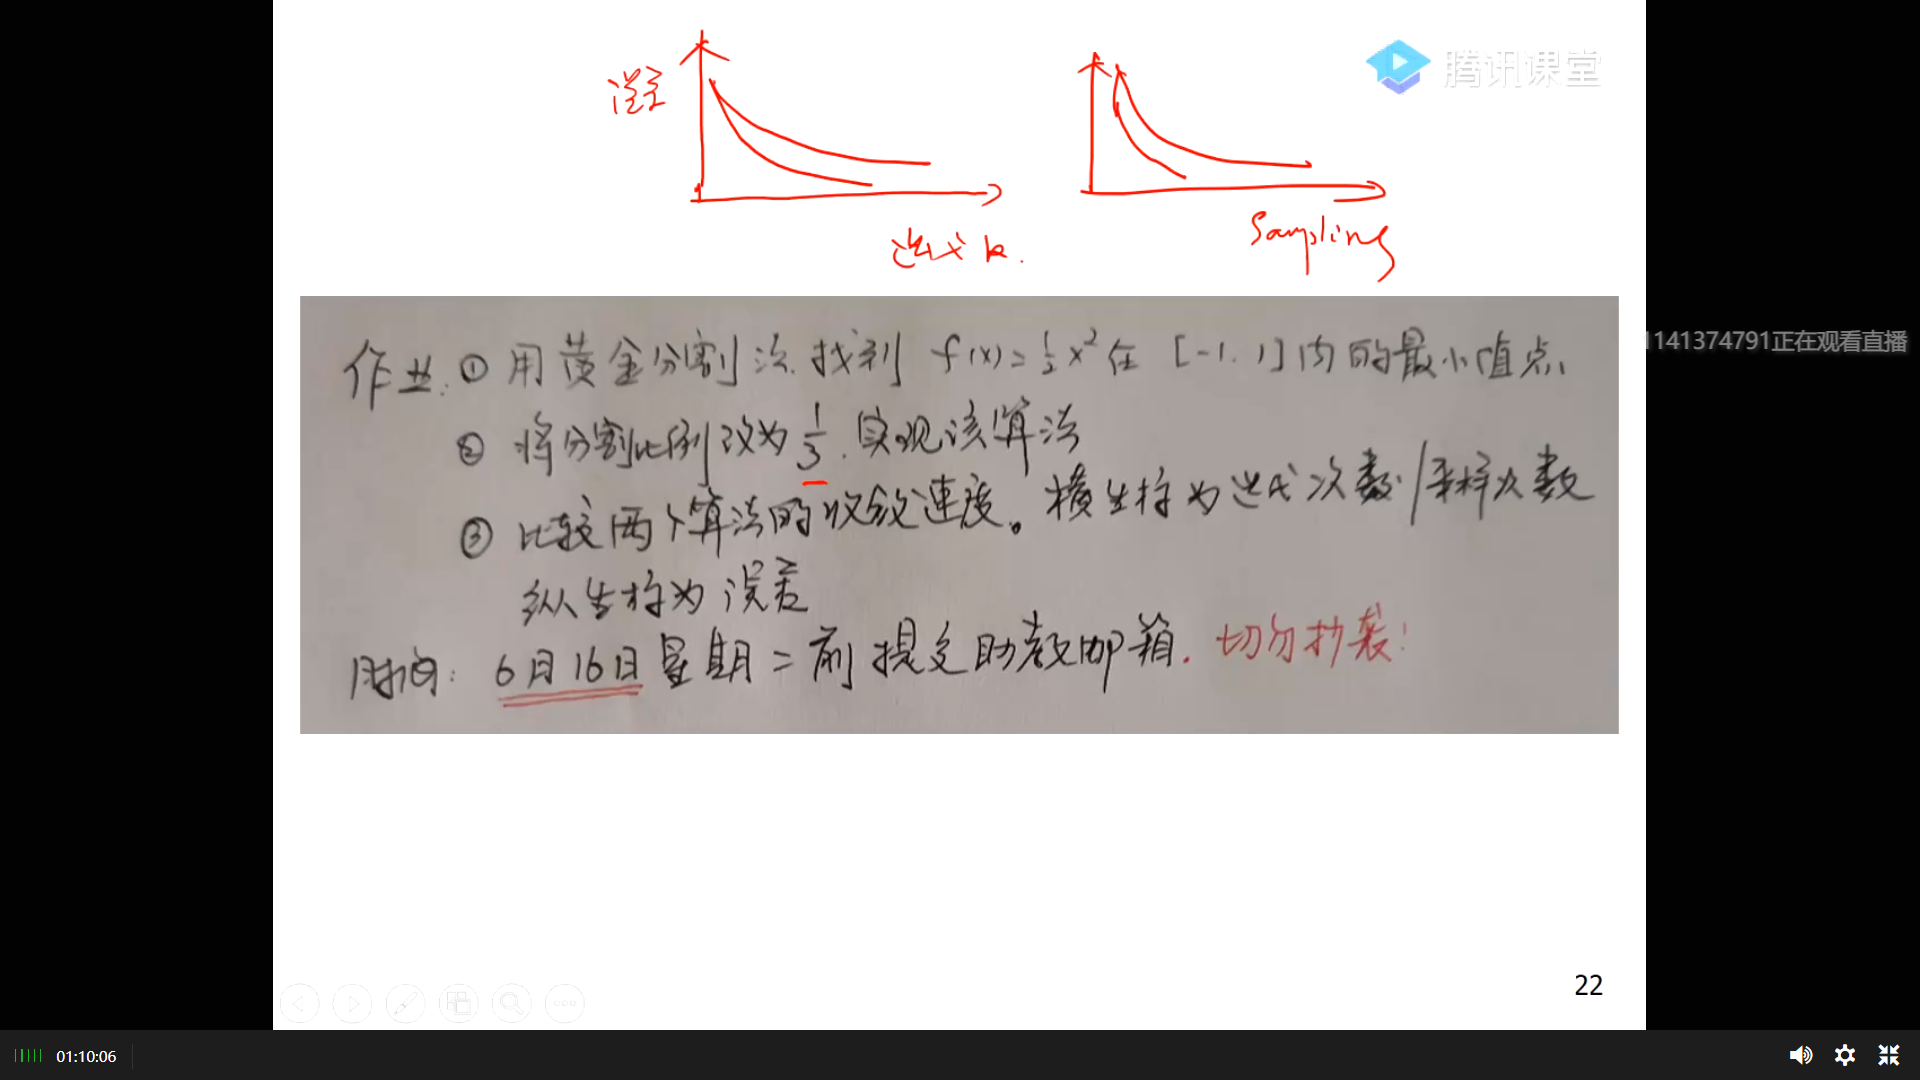 腾讯课堂
误差
迭代 k.
Sampling
1141374791正在观看直播
作业: ① 用黄金分割法找到 f(x)=½x² 在 [-1, 1] 内的最小值点.
② 将分割比例改为 1/3. 实现该算法
③ 比较两个算法的收敛速度。横坐标为迭代次数/采样次数
纵坐标为误差
时间: 6月16日星期二前提交助教邮箱. 切勿抄袭!
22
01:10:06